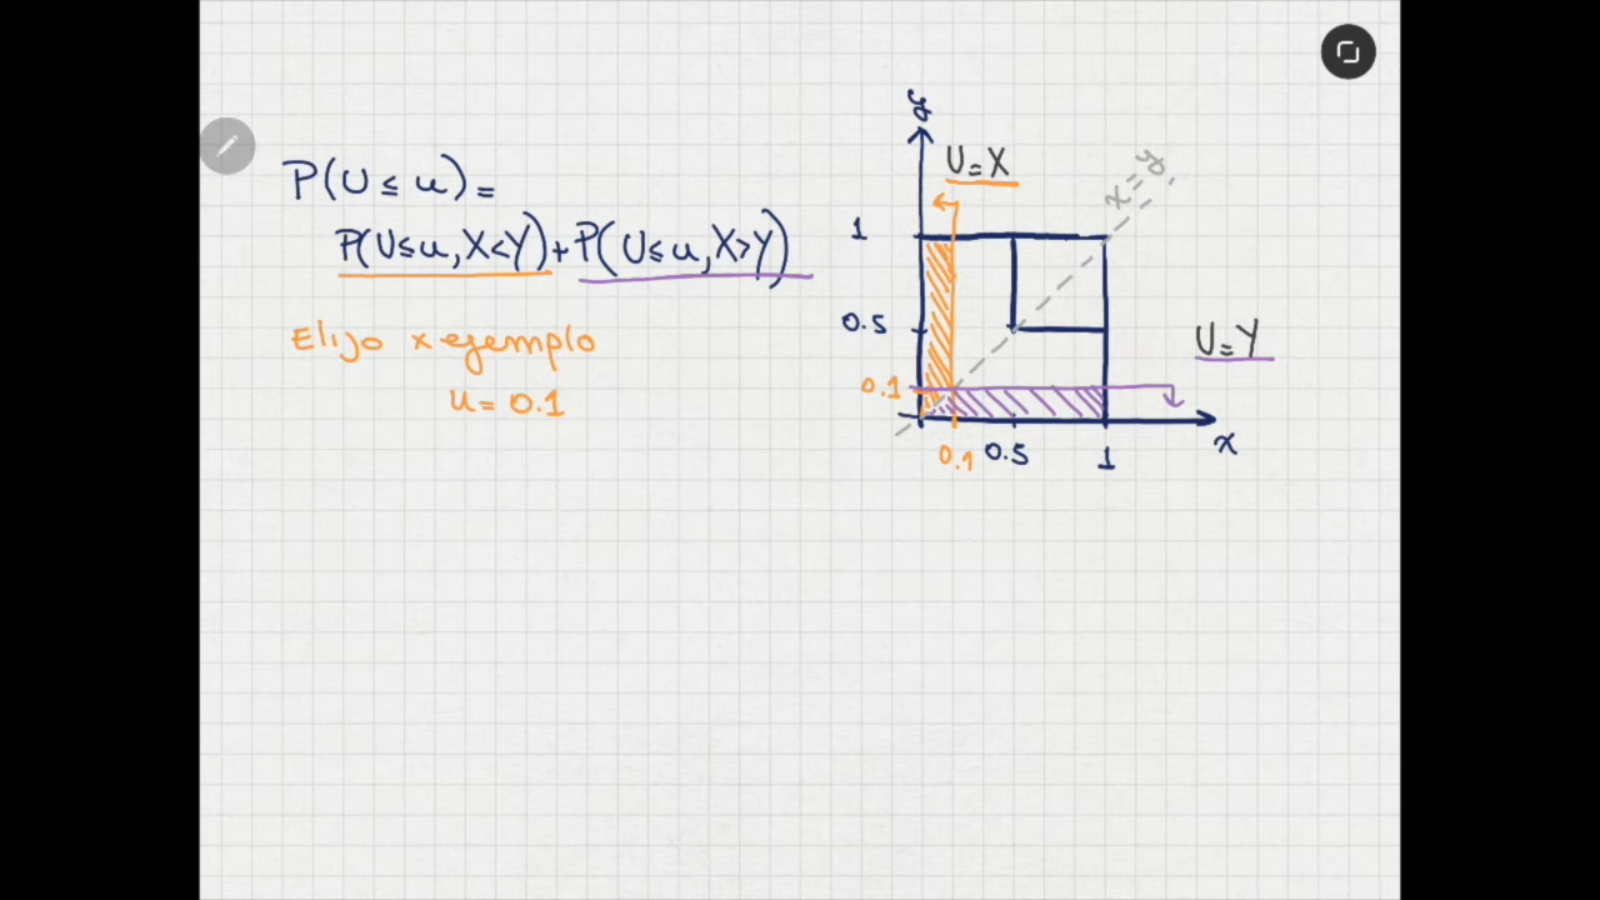 P(U ≤ u) =
P(U ≤ u, X < Y) + P(U ≤ u, X > Y)
Elijo x ejemplo
u = 0.1
y
U = X
x = y
1
0.5
U = Y
0.1
x
0.1 0.5 1